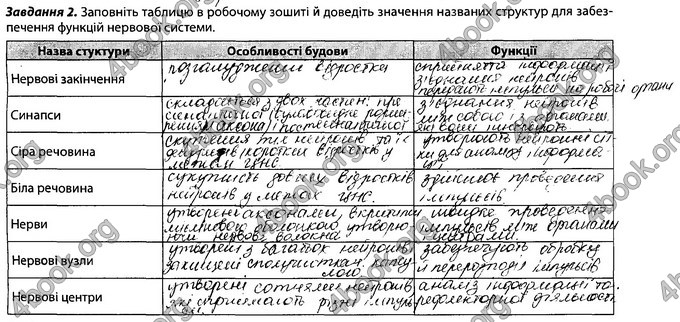 Завдання 2. Заповніть таблицю в робочому зошиті й доведіть значення названих структур для забез-
печення функцій нервової системи.
Назва стуктури Особливості будови Функції
Нервові закінчення розгалуджении відростка сприйняття інформації
з'єднання нейронів
передають імпульси на робочі органи
Синапси складається з двох частин: пре
синаптичної (булавовидне розши
рення аксона) і постсинаптичної
з'єднання нейронів
між собою і з органами
які вони іннервують
Сіра речовина скупчення тіл нейронів та їх
коротких відростків у
межах ЦНС
утворюють нейронні сі-
тки для аналізу інформації
Біла речовина сукупність довгих відростків
нейронів у межах ЦНС.
здійснює проведення
імпульсів
Нерви утворені аксонами, вкритими
мієліновою оболонкою, утворю
ючи нервові волокна
швидке проведення
імпульсів між органами
Нервові вузли утворені з багатьох нейронів,
захищені сполучнотканн. капсу
лою.
забезпечують обробку
й перерозподіл імпульсів
Нервові центри утворені сотнями нейронів,
які сприймають різні імпуль
си.
аналіз інформації та
рефлекторної діяльності
4book.org